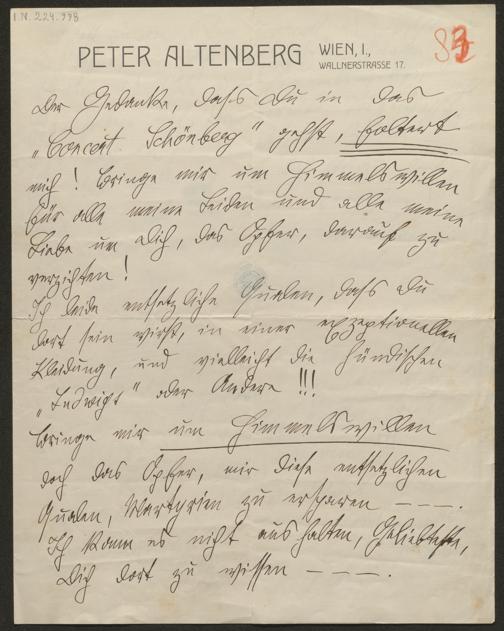 I.N. 224.998
PETER ALTENBERG WIEN, I.,
WALLNERSTRASSE 17.
Der Gedanke, dass Du in das
„Concert Schönberg" gehst, foltert
mich! Bringe mir um Himmelswillen
für alle meine Leiden und alle meine
Liebe um Dich, das Opfer, darauf zu
verzichten!
Ich leide entsetzliche Qualen, dass Du
dort sein wirst, in einer exzeptionellen
Kleidung, und vielleicht die hündischen
„Ludwigs" oder Andere!!!
Bringe mir um Himmelswillen
doch das Opfer, mir diese entsetzlichen
Qualen, Martyrien zu ersparen – – –.
Ich kann es nicht aushalten, Geliebteste,
Dich dort zu wissen – – –.